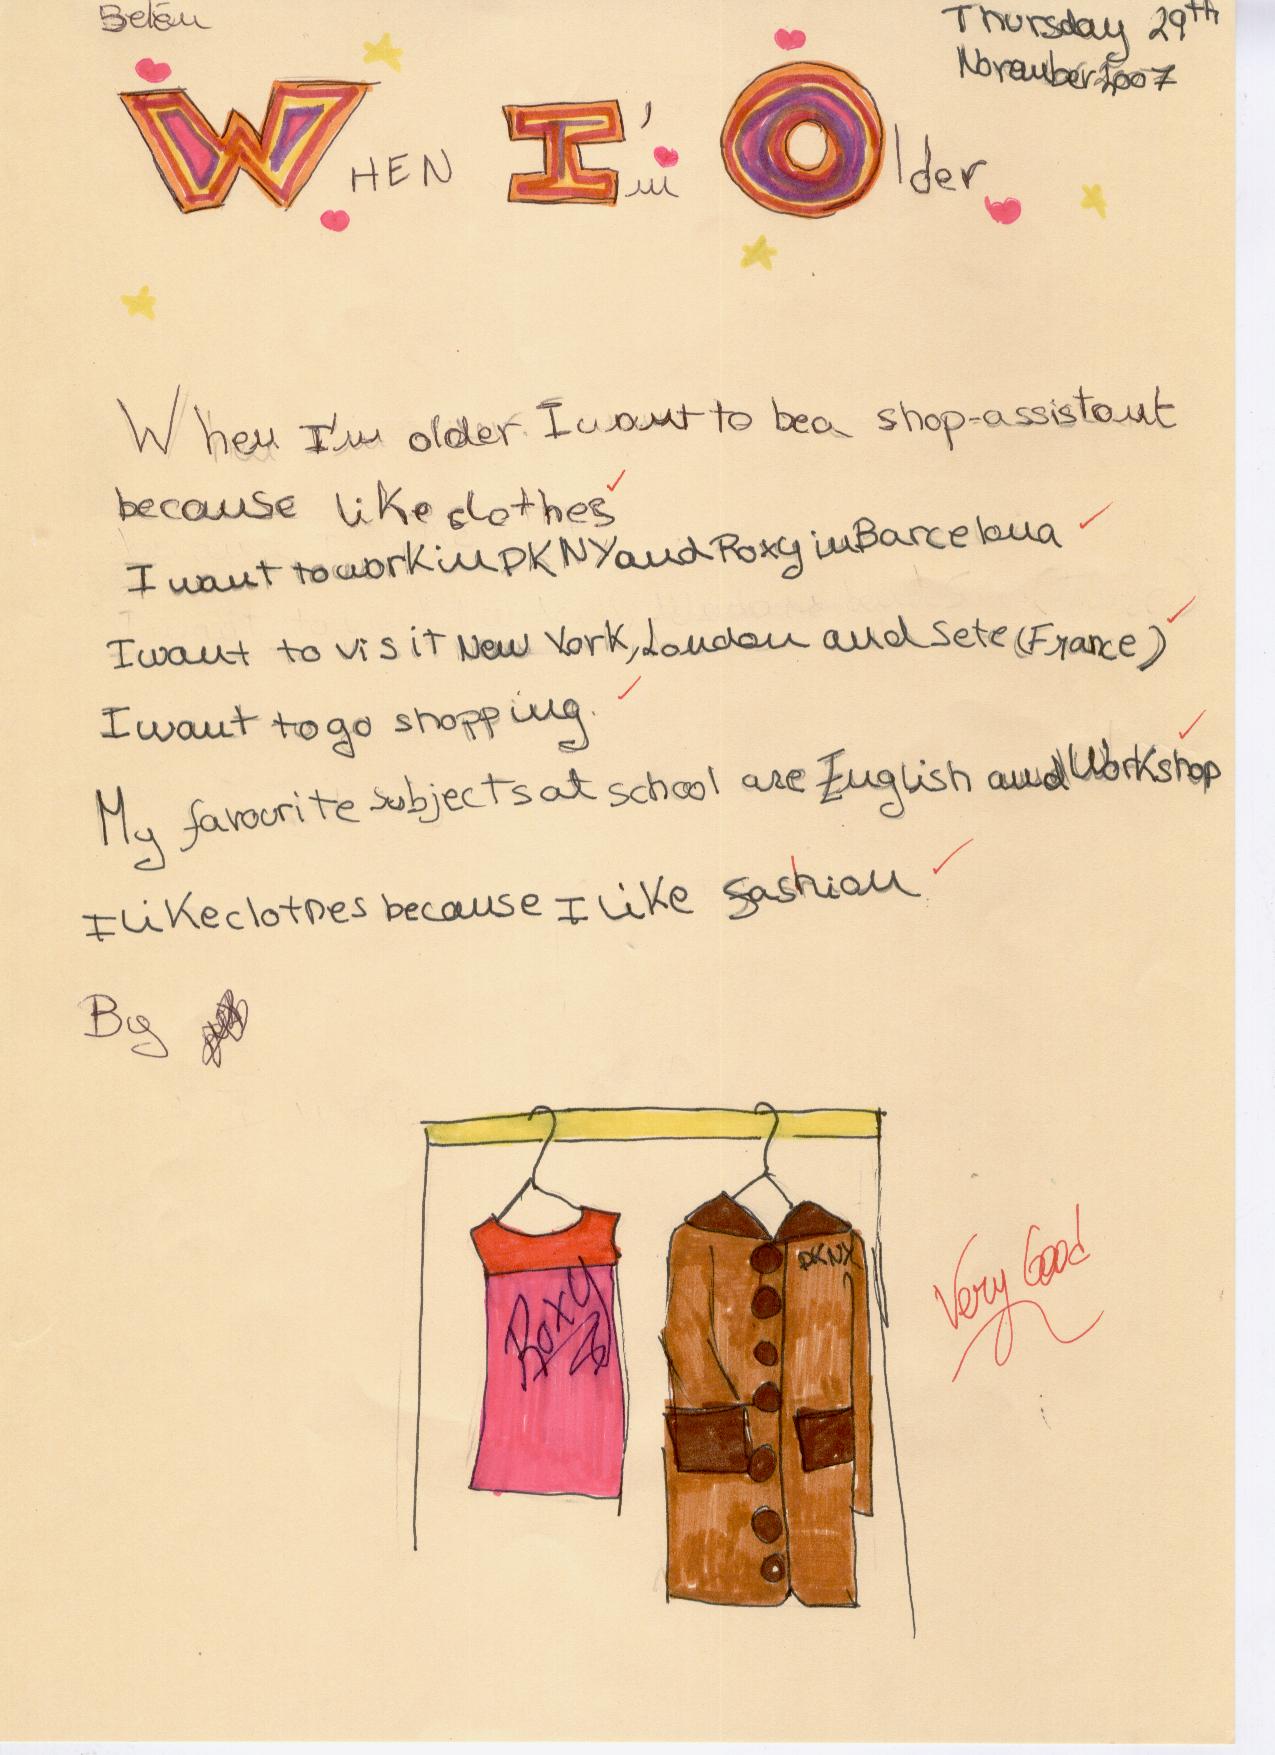 Belén
Thursday 29th
November 2007
WHEN I'm Older
When I'm older I want to be a shop-assistant
because like clothes
I want to work in DKNY and Roxy in Barcelona
I want to visit New York, London and Sete (France)
I want to go shopping.
My favourite subjects at school are English and Workshop
I like clothes because I like fashion
By
Roxy
DKNY
Very Good